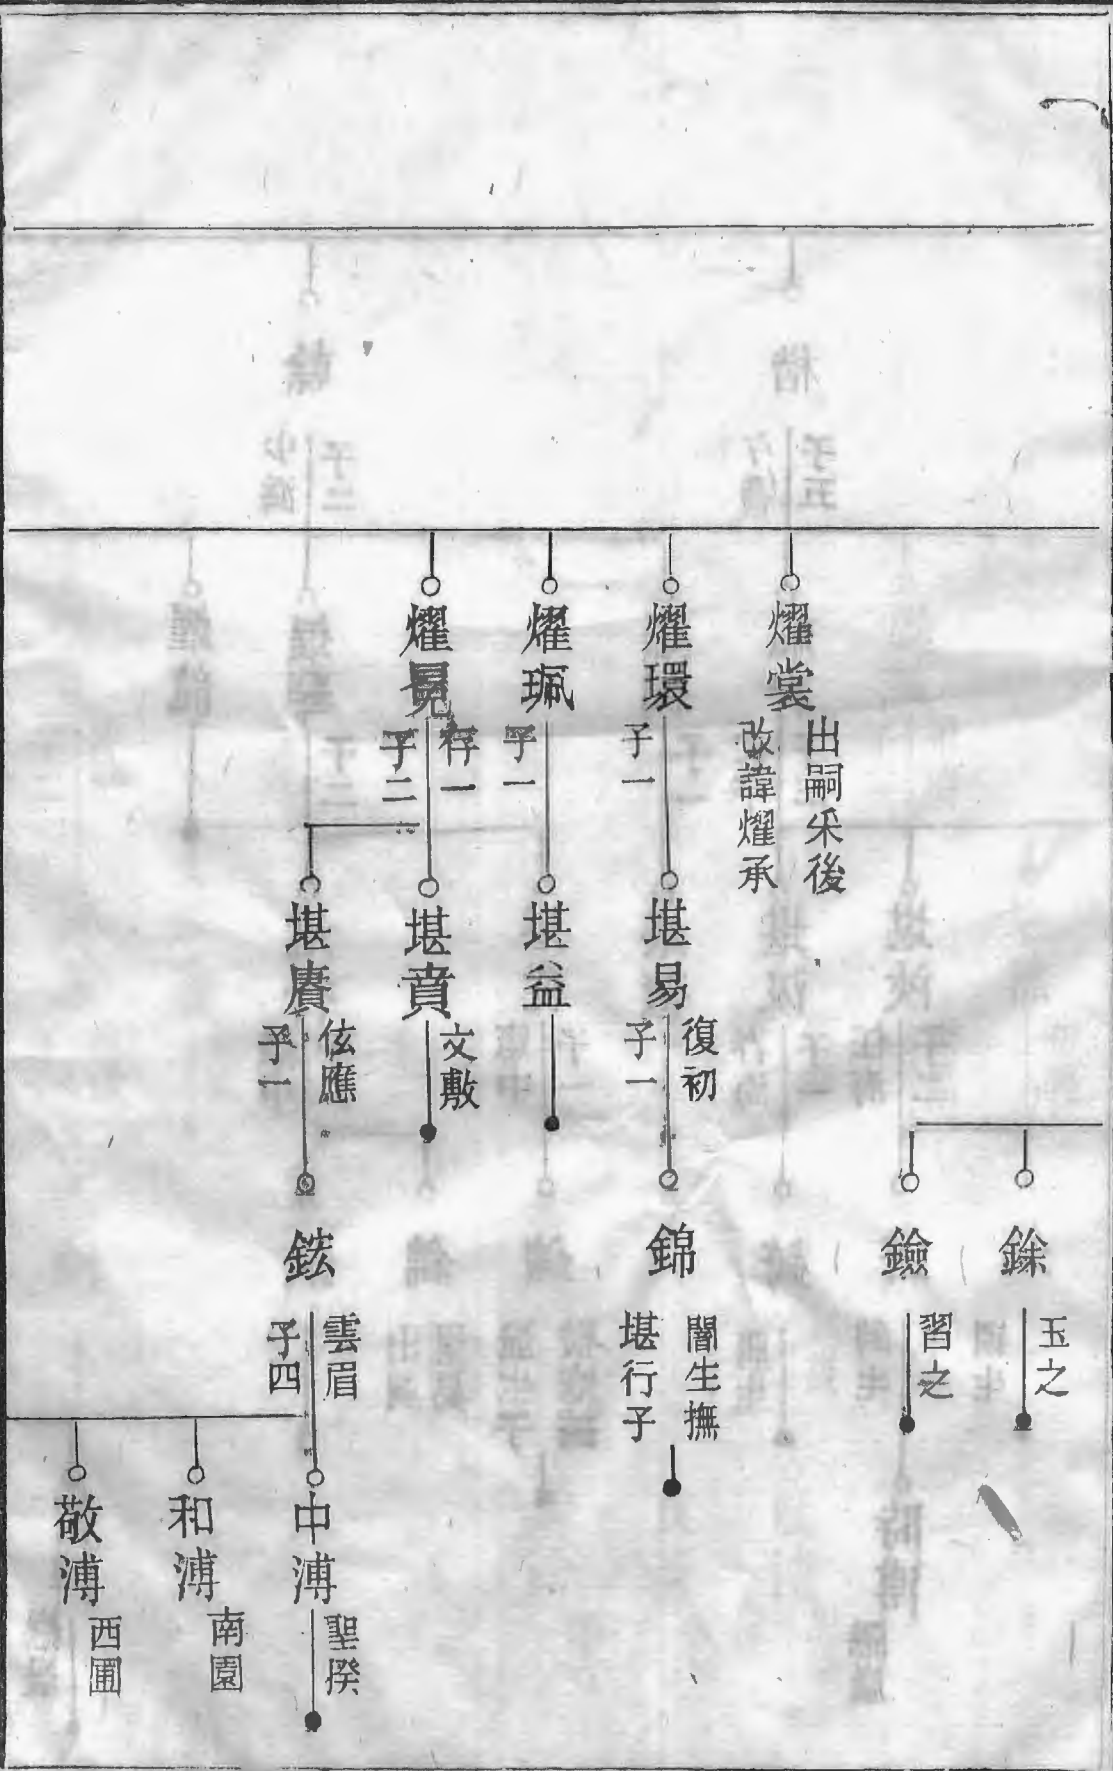 燿裳
出嗣采後
改諱燿承
燿環
子一
燿珮
子一
燿冕
存一
子二
堪易
復初
子一
堪益
堪賁
文敷
堪賡
伭應
子一
銝
玉之
鐱
習之
錦
闇生撫
堪行子
鋐
雲眉
子四
中溥
聖揆
和溥
南園
敬溥
西圃